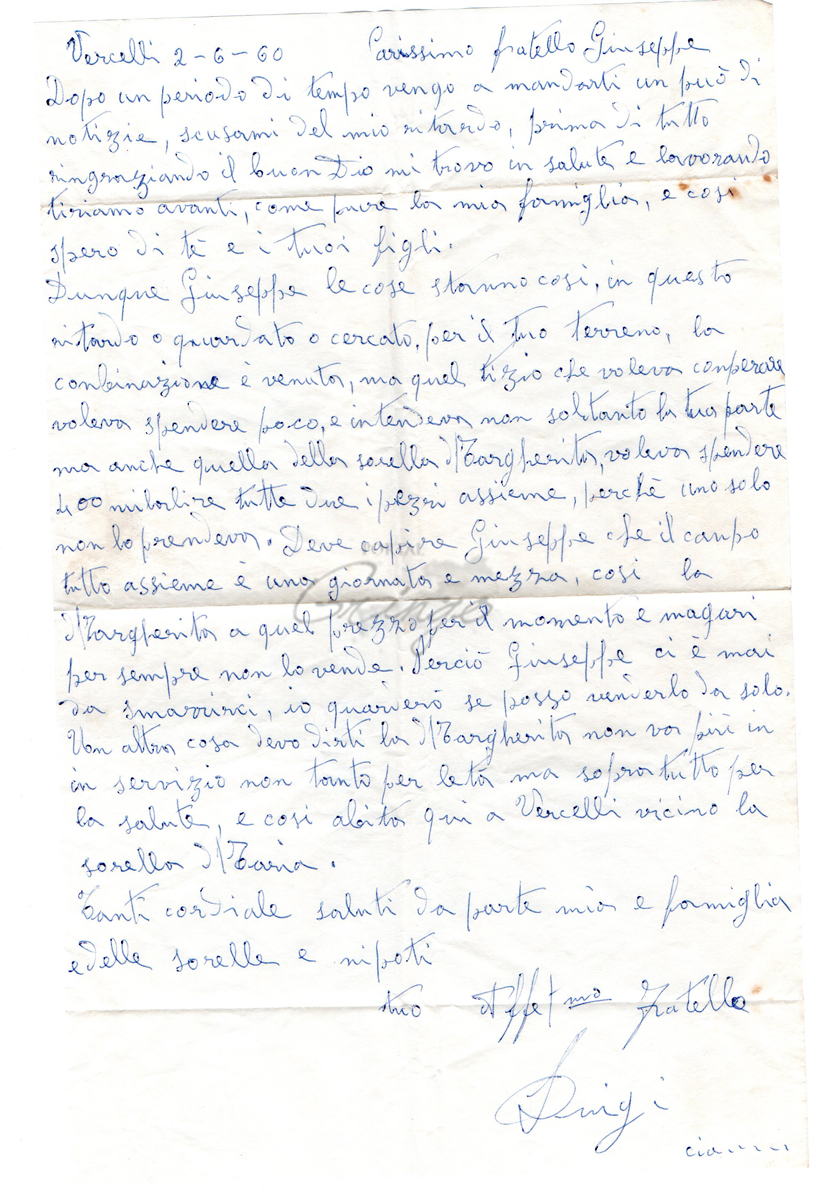 Vercelli 2-6-60 Carissimo fratello Giuseppe
Dopo un periodo di tempo vengo a mandarti un può di
notizie, scusami del mio ritardo, prima di tutto
ringraziando il buon Dio mi trovo in salute e lavorando
tiriamo avanti, come pure la mia famiglia, e cosi
spero di tè e i tuoi figli.
Dunque Giuseppe le cose stanno cosi, in questo
ritardo o quardato o cercato, per il tuo terreno, la
combinazione è venuta, ma quel tizio che voleva conperare
voleva spendere poco, e intendeva non soltanto la tua parte
ma anche quella della sorella Margherita, voleva spendere
400 mila lire tutte due i pezzi assieme, perchè uno solo
non lo prendeva. Deve capire Giuseppe che il canpo
tutto assieme è una giornata e mezza, cosi la
Margherita a quel prezzo per il momento e magari
per sempre non lo vende. Perciò Giuseppe ci è mai
da smarrirci, io quarderò se posso venderlo da solo.
Un altra cosa devo dirti la Margherita non va più in
in servizio non tanto per leta ma sopratutto per
la salute, e cosi abita qui a Vercelli vicino la
sorella Maria.
Tanti cordiale saluti da parte mia e famiglia
e delle sorelle e nipoti
tuo Affetmo Fratello
Luigi
ciau....